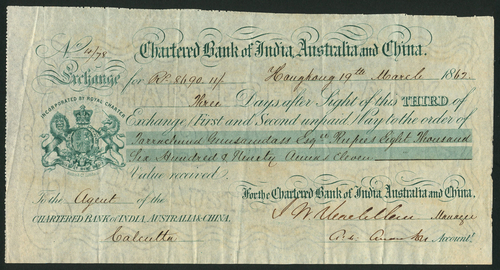 No 4/78
Chartered Bank of India, Australia and China.
Exchange for Rs 8690.11/ Hongkong 19th March 1862
Three Days after Sight of this THIRD of
INCORPORATED BY ROYAL CHARTER
Exchange (First and Second unpaid) Pay to the order of
Esqre Rupees Eight Thousand
Six Hundred & Ninety Annas Eleven
Value received.
To the Agent of the
For the Chartered Bank of India, Australia and China.
CHARTERED BANK OF INDIA, AUSTRALIA & CHINA,
Manager
Calcutta
Accountt.